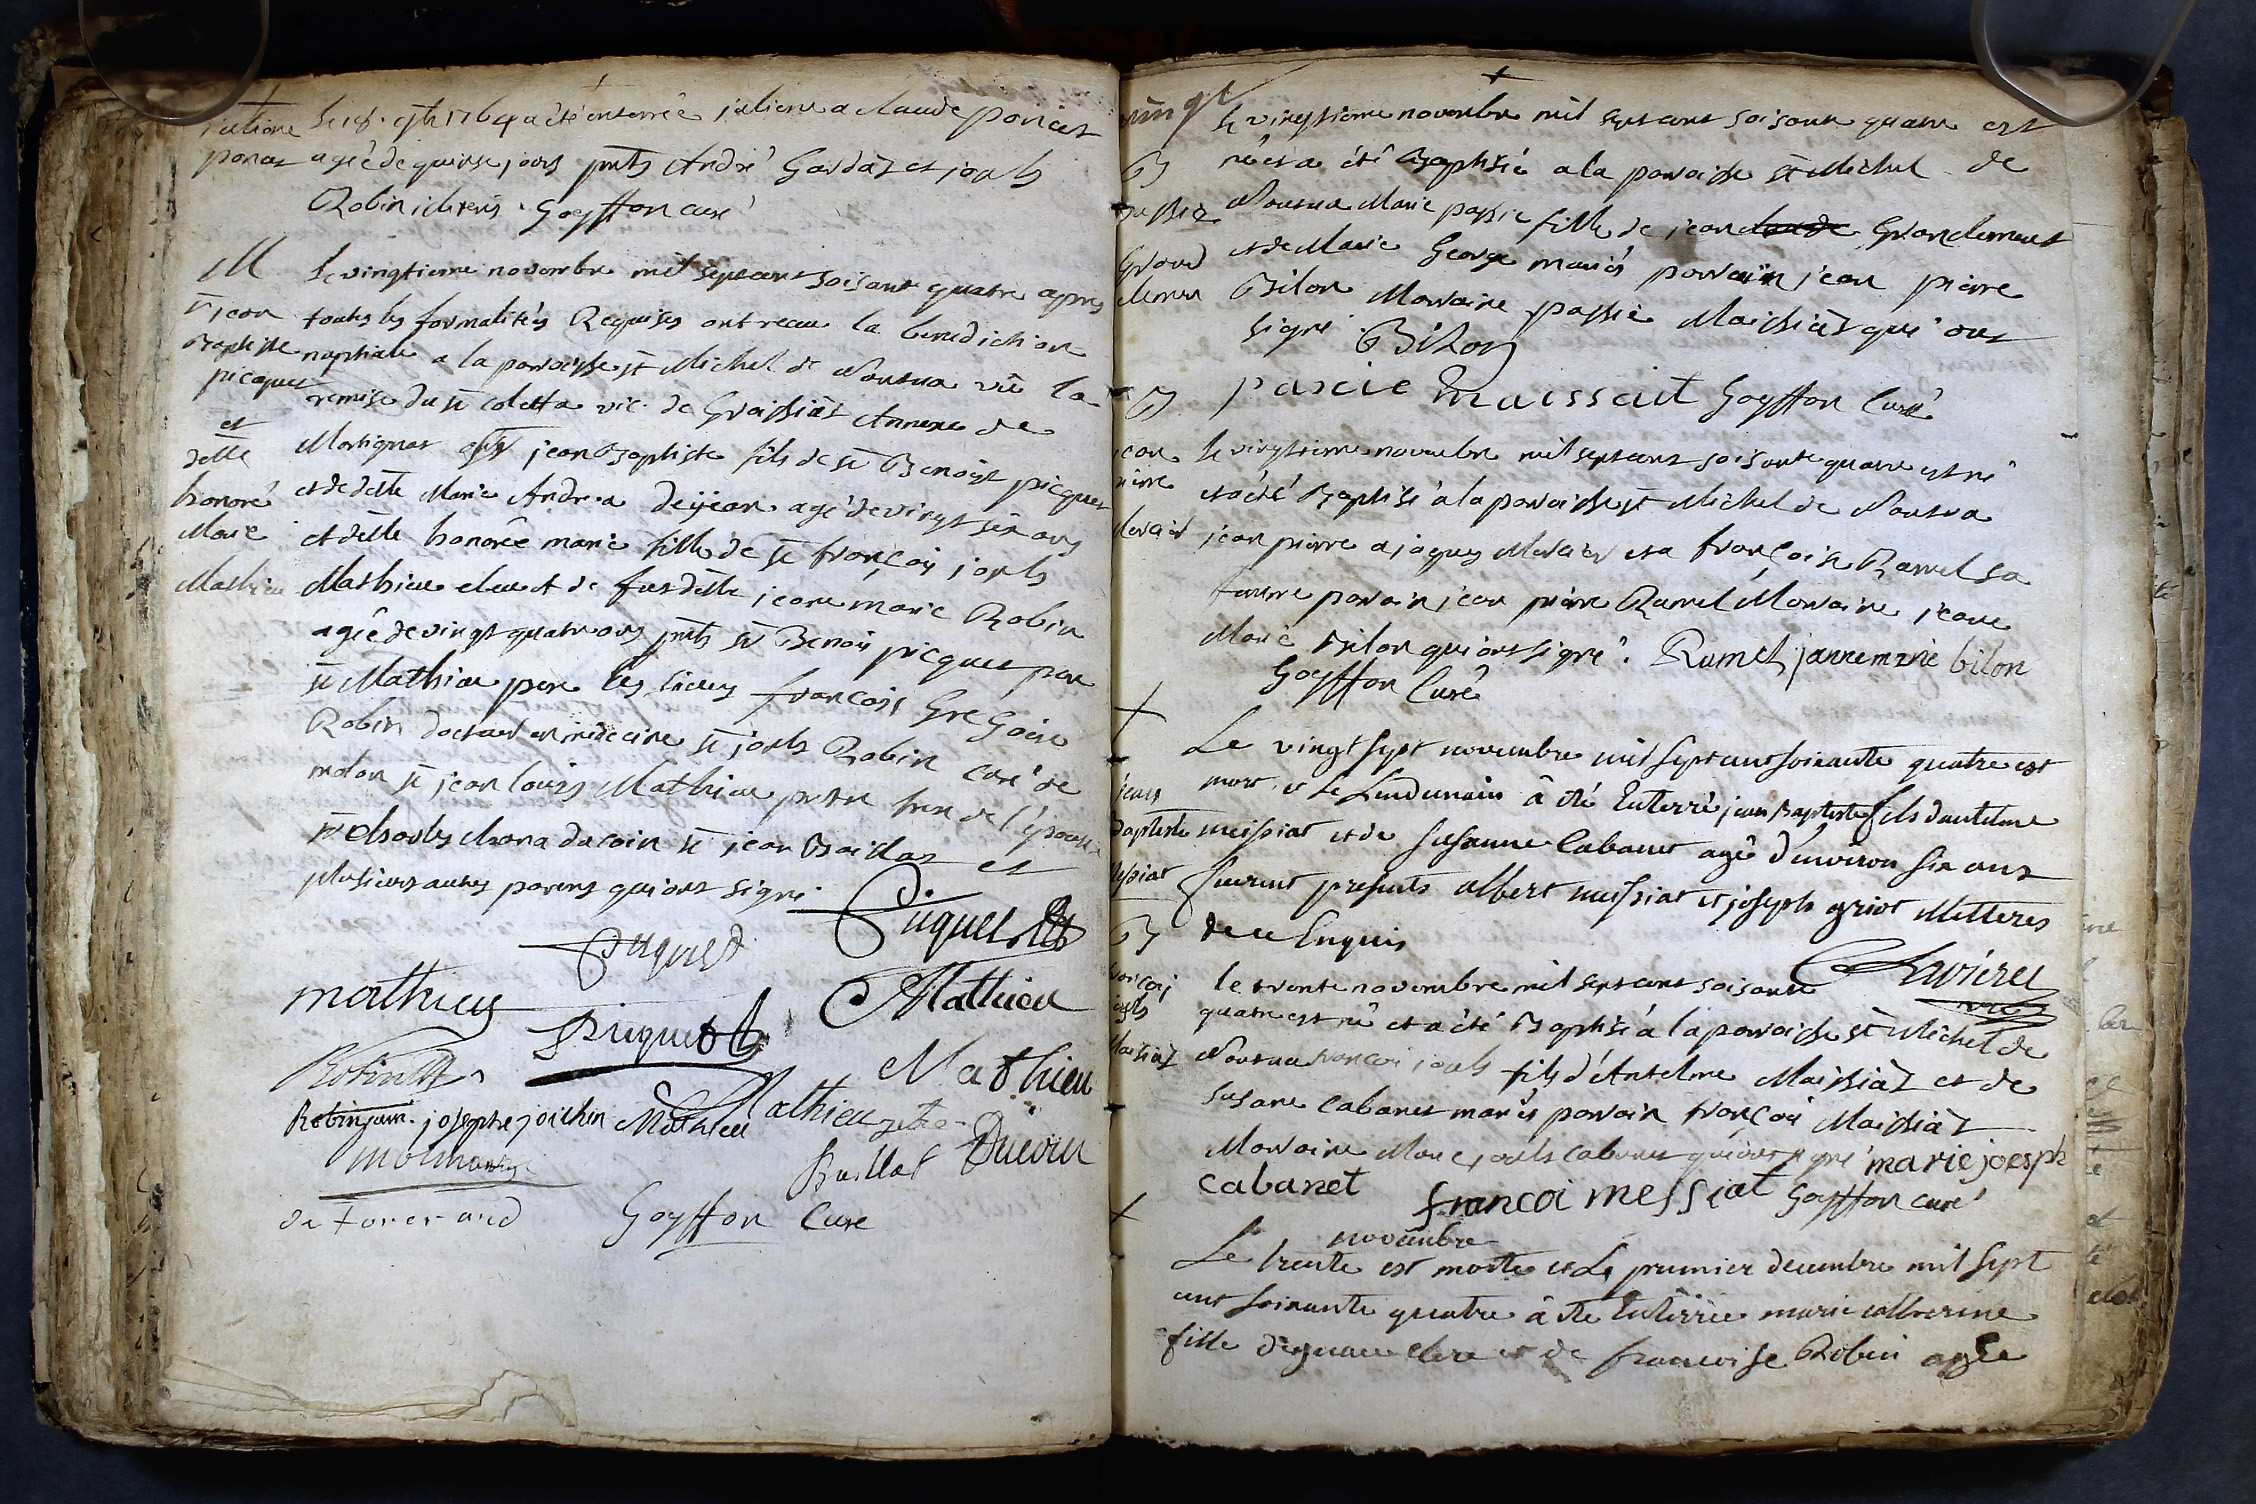 juliene
poncet
le 18. 9bre 1764 a été enterrée juliene a claude poncet
agée de quinse jours pnts André Gardaz et josph
Robin illiterés . Goyffon curé
M
sr jean
Baptiste
picquet
et
delle
honoré
Marie
Mathieu
le vingtieme novembre mil septcent soisante quatre apres
toutes les formalités Requises ont receu la benediction
nuptiale a la paroisse st Michel de Nantua vü la
remise du sr coletta vic. de Groissiat Annexe de
Martignat jean Baptiste fils de sr Benoist picquet
et de delle Marie Andrea dejean agé de vingt six ans
et delle honorée marie fille de sr françois josph
Mathieu elu et de fut delle jeane marie Robin
agée de vingt quatre ans pnts sr Benoit picquet pere
sr Mathieu pere les sieurs françois Gregoire
Robin docteur en médecine sr josph Robin curé de
molon sr jean louis Mathieu pretre frere de l'épouse
sr charles chana ducoin sr jean Baillat et
plusieurs autres parens qui ont signé.
Piquet
Piquet
mathieu
Mathieu
Piquet
Robin
Mathieu
Robin josephe joichin Mathieu
Mathieu ptre
molinard
Baillat Ducoin
de Forerand
Goyffon Curé
vingt
B
passie
Grand
clement
le vingtieme novembre mil sept cent soisante quatre est
née et a été Baptisée a la paroisse st Michel de
Nantua Marie passie fille de jean claude Grandclement
et de Marie George mariés parrain jean pierre
Bilon Marraine passie Maissiat qui ont
signé. Bilon
pascie maissait Goyffon Curé
B
jean
pierre
Mercier
le vingtieme novembre mil sept cent soisante quatre est né
et a été Baptisé a la paroisse st Michel de Nantua
jean pierre a jaques Mercier et a françoise Ramel sa
femme parrain jean pierre Ramel Marraine jeane
Marie Bilon qui ont signé. Ramel janne marie bilon
Goyffon Curé
jean
Baptiste
Messiat
Le vingt sept novembre mil sept cent soixante quatre est
mort et le Lendemain â été Enterré jean Baptiste fils dantelme
meissiat et de Susanne Cabanet agé d'environ six ans
furent presents albert meissiat et joseph griot Illitteres
de ce Enquis
Luvieres
vic
B
françois
josph
Maissiaz
le trente novembre mil sept cent soisante
quatre est né et a été Baptisé á la paroisse st Michel de
Nantua françois josph fils d'Antelme Maissiaz et de
susane Cabanet mariés parrain françois Maissiaz
Marraine Marie josph Cabanet qui ont signé marie joesph
cabanet francoi messiat Goyffon curé
novembre
Le trente est morte et Le premier decembre mil sept
cent soixante quatre â été Enterrée marie catherine
fille dignace clere et de francoise Robin agée